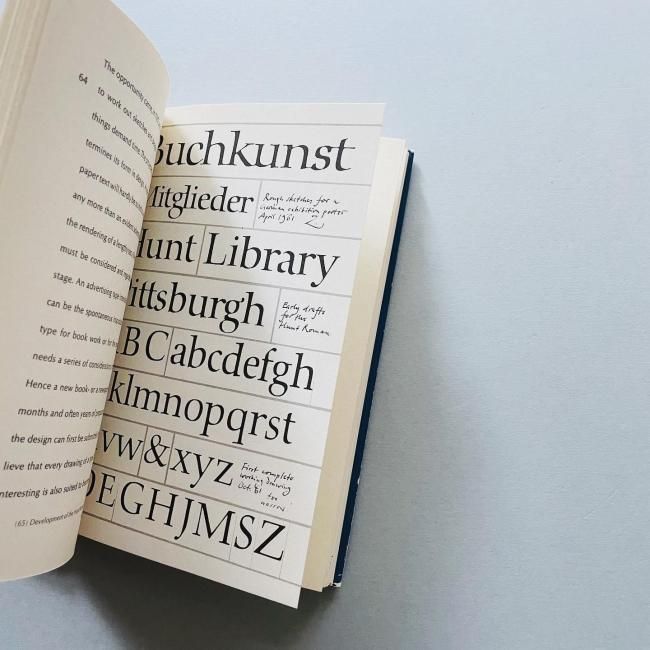 The opportunity came,
64
to work out sketches
things demand time. The
termines its form in
paper text will hardly be
any more than an evident
the rendering of a lengthy
must be considered and
stage. An advertising type
can be the spontaneous
type for book work or for
needs a series of considerations
Hence a new book- or a
months and often years of
the design can first be
lieve that every drawing of
interesting is also suited to
(65) Development of the
Buchkunst
Mitglieder
Rough sketches for a
German exhibition poster
April 1961
Hunt Library
Pittsburgh
Early drafts
for the
Hunt Roman
BC abcdefgh
klmnopqrst
vw&xyz
First complete
working drawing
Oct. 61 too
narrow
DEGHJMSZ